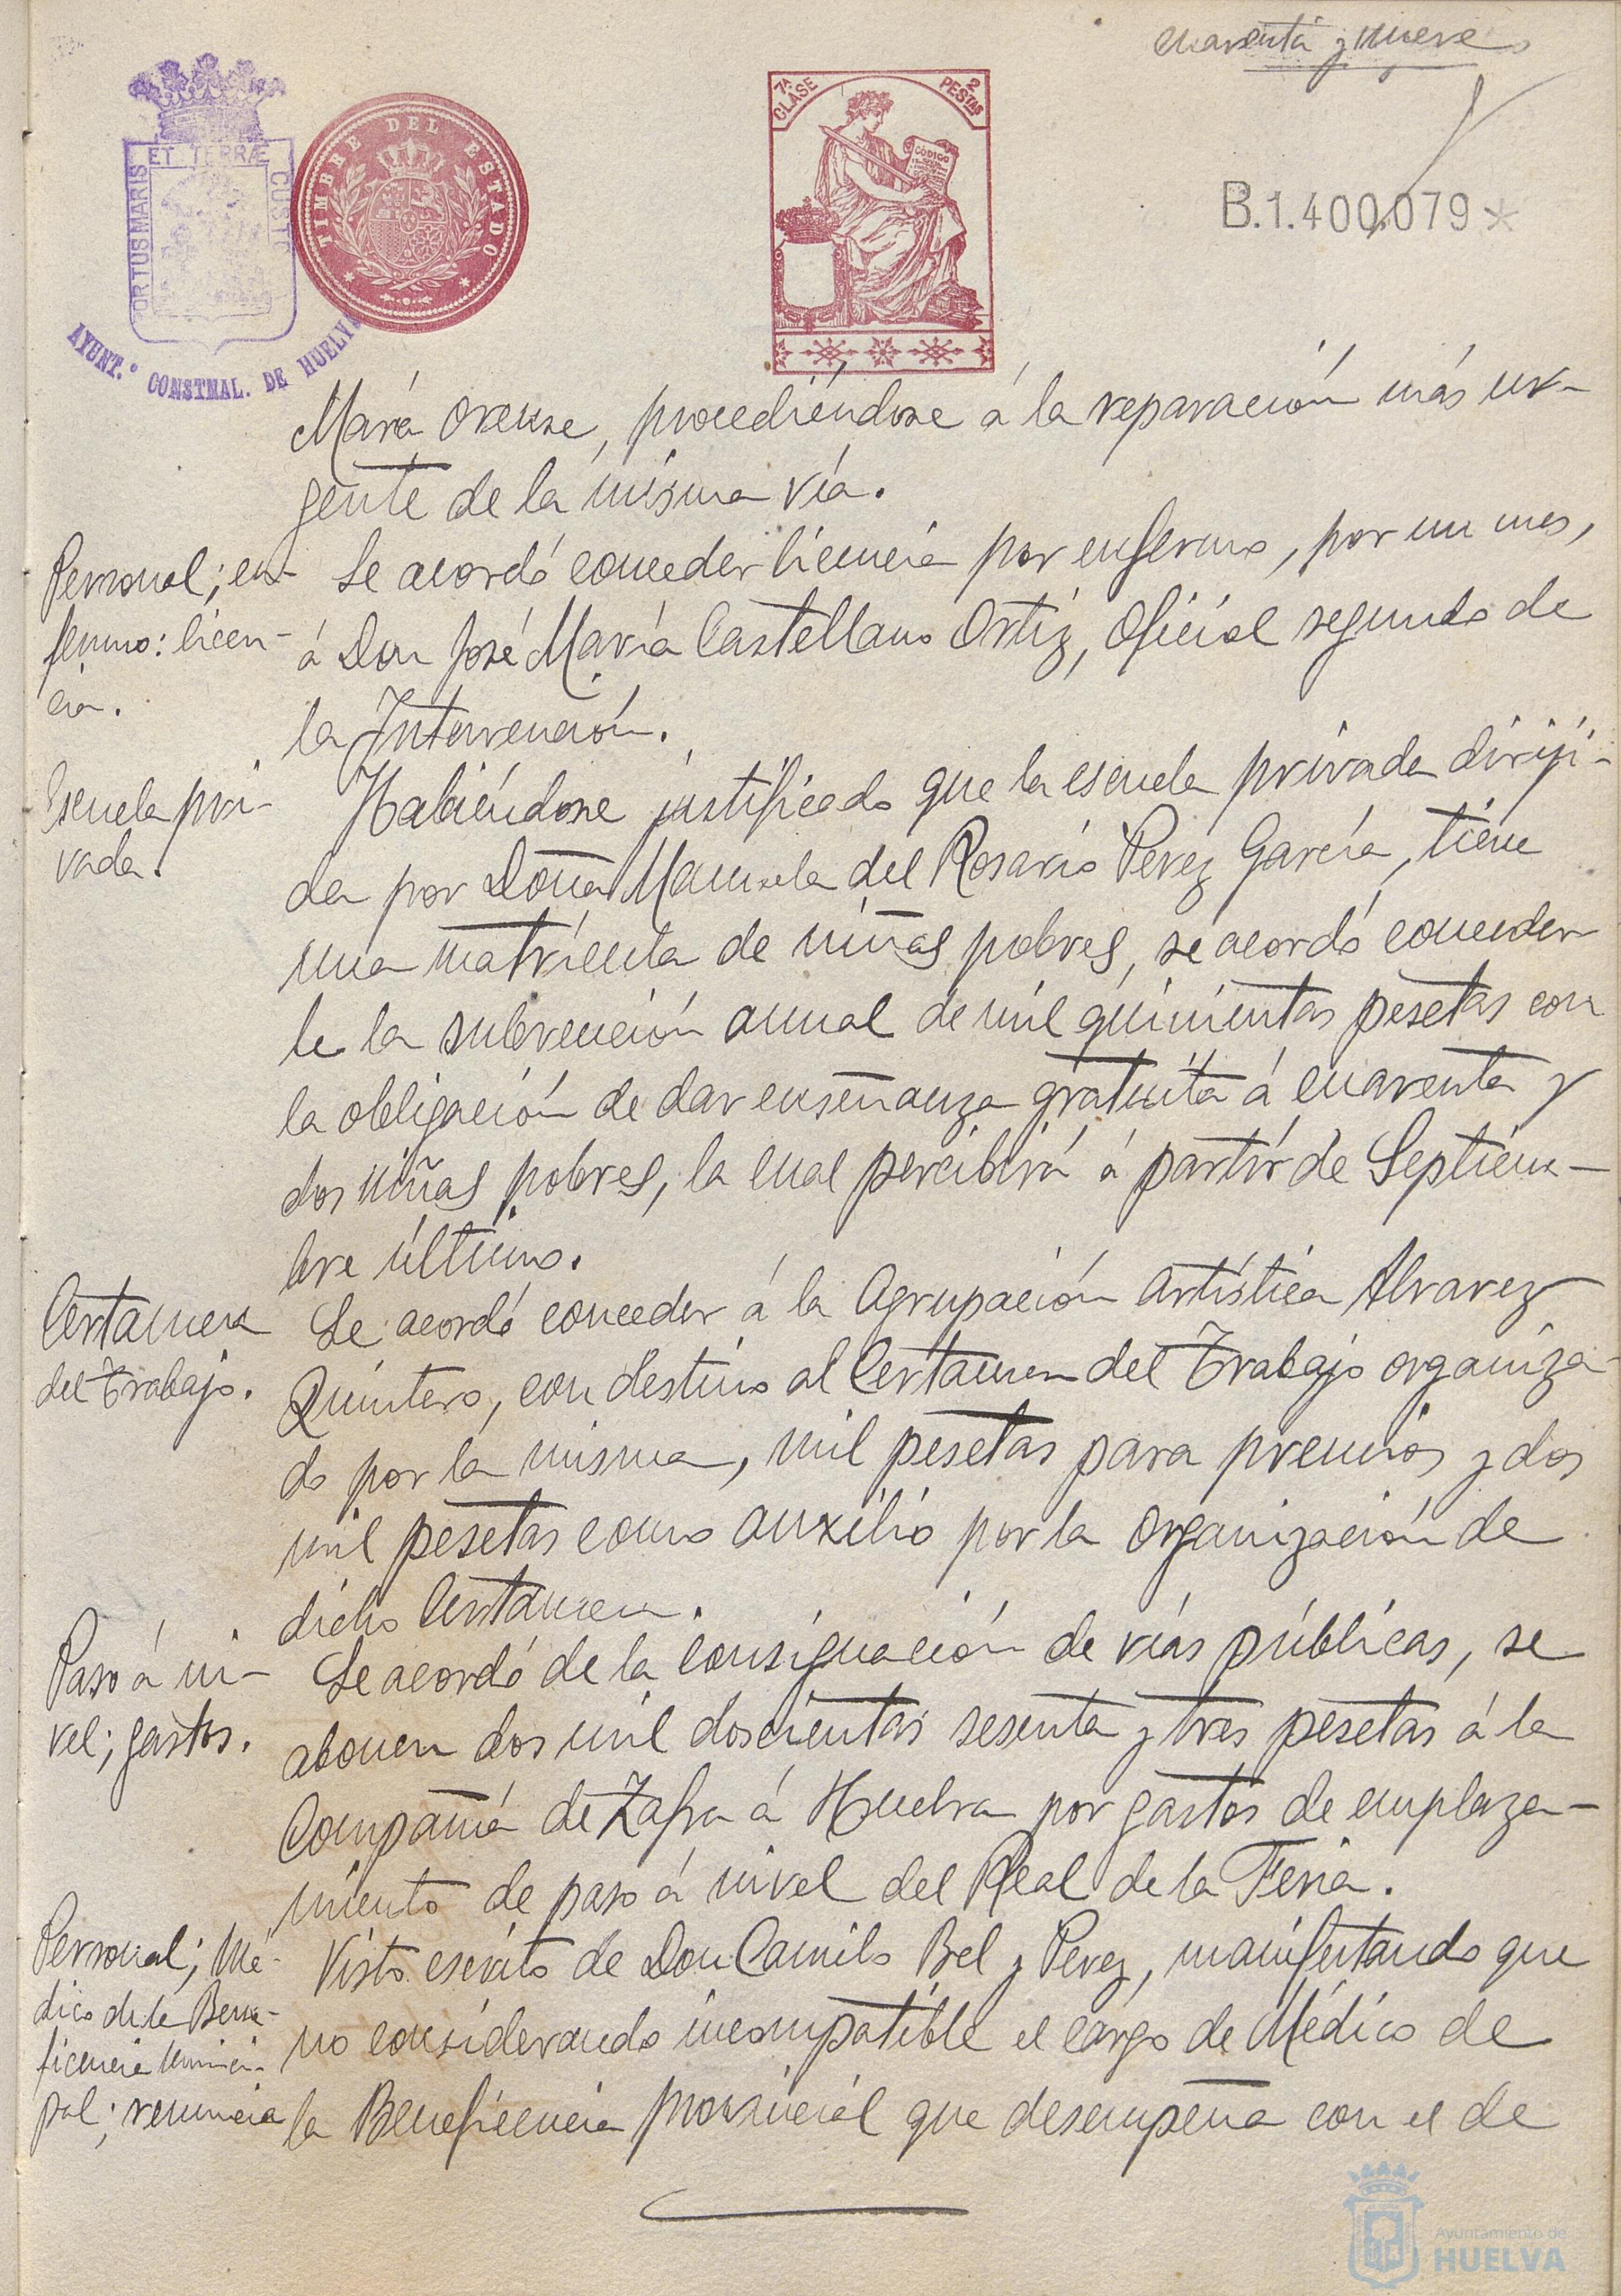 cuarenta y nueve
7ª CLASE
2 PESTAS
CÓDIGO
ORTUS MARIS ET TERRÆ CUSTO
TIMBRE DEL ESTADO
B.1.400.079*
AYUNT.º CONSTNAL. DE HUELVA
María Orense, procediéndose á la reparación más ur-
gente de la misma vía.
Personal; en-
fermo: licen-
cia.
Se acordó conceder licencia por enfermo, por un mes,
á Don José María Castellano Ortiz, Oficial segundo de
la Intervención.
Escuela pri-
vada.
Habiéndose justificado que la escuela privada dirigi-
da por Doña Manuela del Rosario Perez García, tiene
una matrícula de niñas pobres, se acordó conceder
le la subvención anual de mil quinientas pesetas con
la obligación de dar enseñanza gratuita á cuarenta y
dos niñas pobres, la cual percibirá á partir de Septiem-
bre último.
Certamen
del Trabajo.
Se acordó conceder á la Agrupación Artística Alvarez
Quintero, con destino al Certamen del Trabajo organiza-
do por la misma, mil pesetas para premios y dos
mil pesetas como auxilio por la organización de
dicho Certamen.
Paso á ni-
vel; gastos.
Se acordó de la consignación de vías públicas, se
abonen dos mil doscientas sesenta y tres pesetas á la
Compañía de Zafra á Huelva por gastos de emplaza-
miento de paso á nivel del Real de la Feria.
Personal; Mé-
dico de la Bene-
ficencia Munici-
pal; renuncia
Visto escrito de Don Camilo Bel y Perez, manifestando que
no considerando incompatible el cargo de Médico de
la Beneficencia provincial que desempeña con el de
Ayuntamiento de
HUELVA